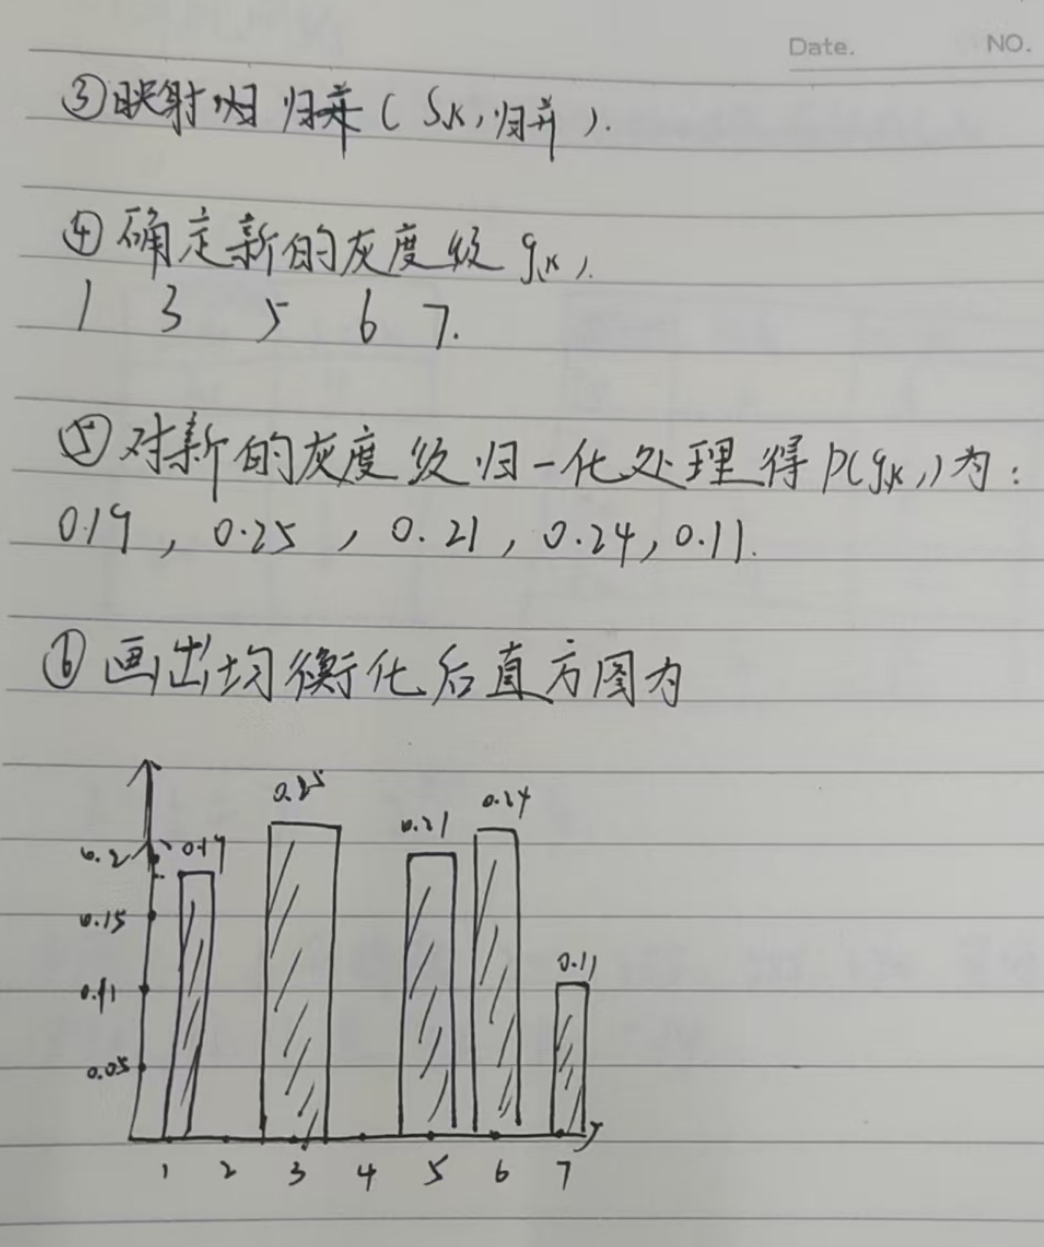 Date. NO.
③映射归 归并 ( Sk,归并 ).
④确定新的灰度级 g(k).
1 3 5 6 7.
⑤对新的灰度级归一化处理得 P(g(k))为:
0.19, 0.25, 0.21, 0.24, 0.11.
⑥画出均衡化后直方图为
0.25
0.24
0.21
0.2 0.19
0.15
0.11
0.1
0.05
1 2 3 4 5 6 7